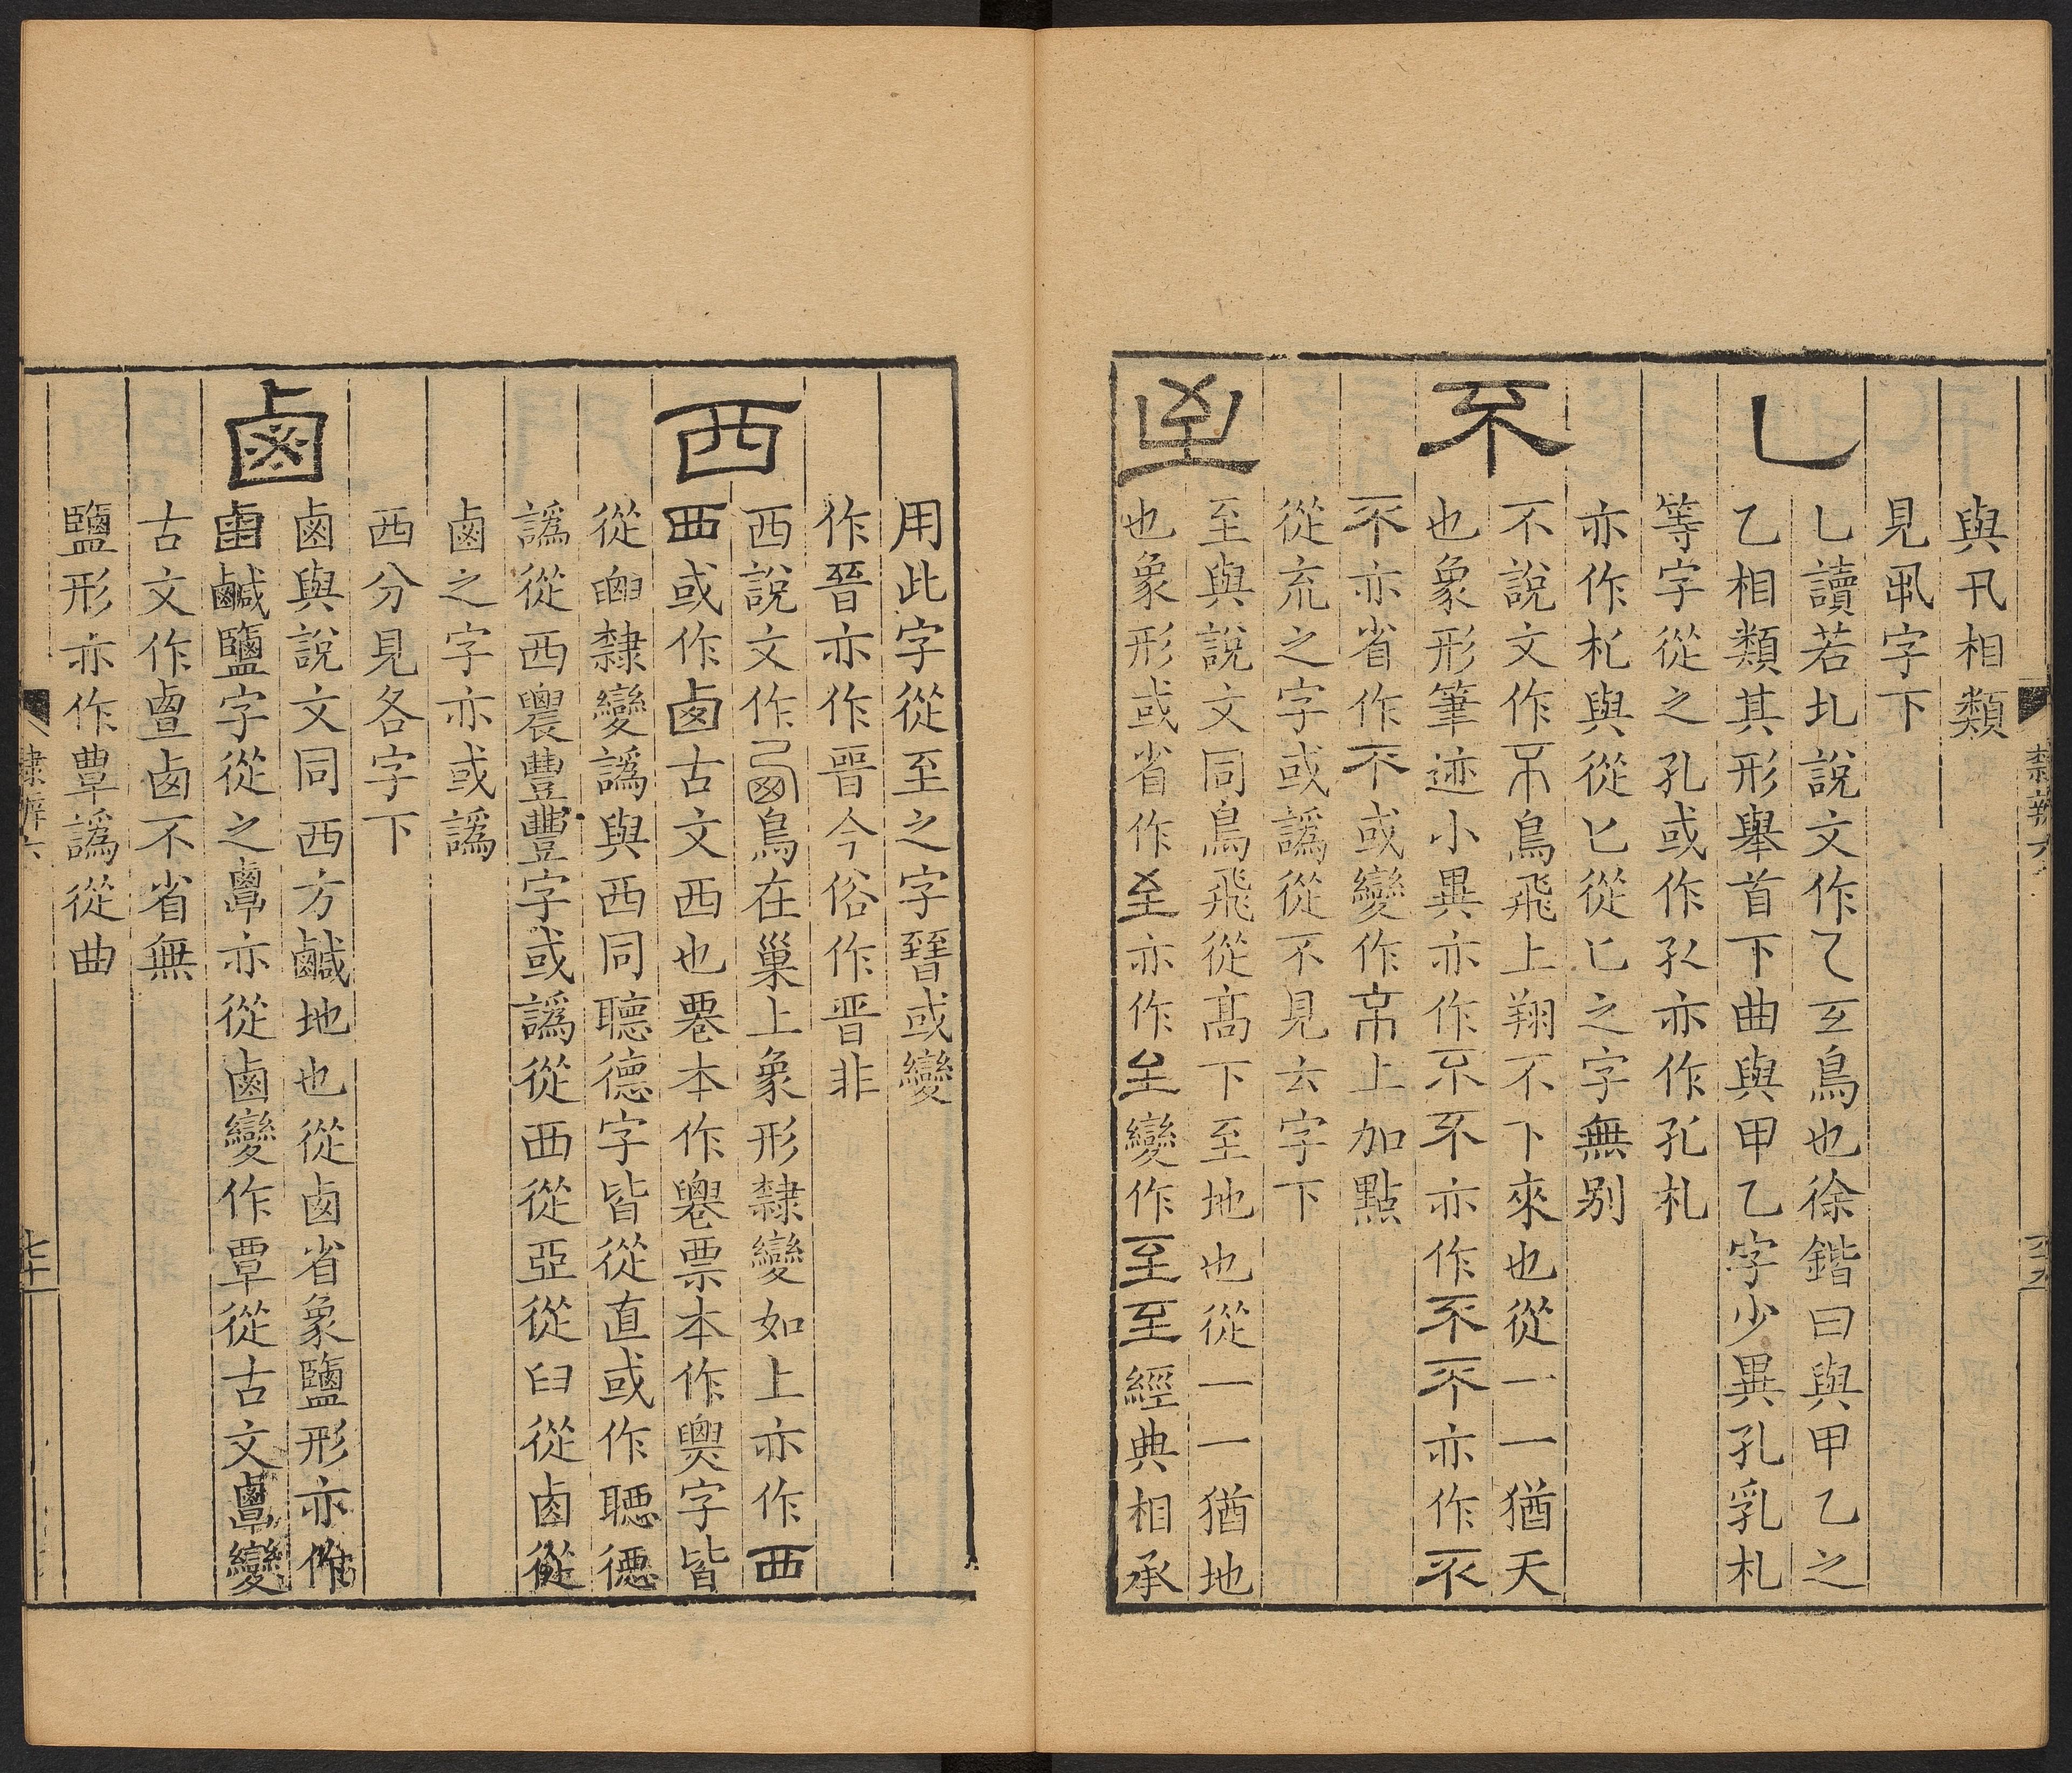 與卂相類
見虱字下
乚
乚讀若圠說文作乙玄鳥也徐鍇曰與甲乙之
乙相類其形舉首下曲與甲乙字少異孔乳札
等字從之孔或作孔亦作孔札
亦作札與從匕從匕之字無别
不
不說文作不鳥飛上翔不下來也從一一猶天
也象形筆迹小異亦作不不亦作不不亦作不
不亦省作不或變作帋上加點
從㐬之字或譌從不見㐬字下
至
至與說文同鳥飛從高下至地也從一一猶地
也象形或省作至亦作至變作至至經典相承
用此字從至之字晉或變
作晉亦作晋今俗作晋非
西
西說文作㢴鳥在巢上象形隸變如上亦作西
西或作卤古文西也䙴本作䙴票本作㶾字皆
從囟隸變譌與西同聽德字皆從直或作聽德
譌從西農豐豐字或譌從西從亞從臼從卤從
鹵之字亦或譌
西分見各字下
鹵
鹵與說文同西方鹹地也從卤省象鹽形亦作
鹵鹹鹽字從之𪉷亦從鹵變作覃從古文𪉷變
古文作𪉷卤不省無
鹽形亦作覃譌從曲
隸辨六
六十九
隸辨六
七十